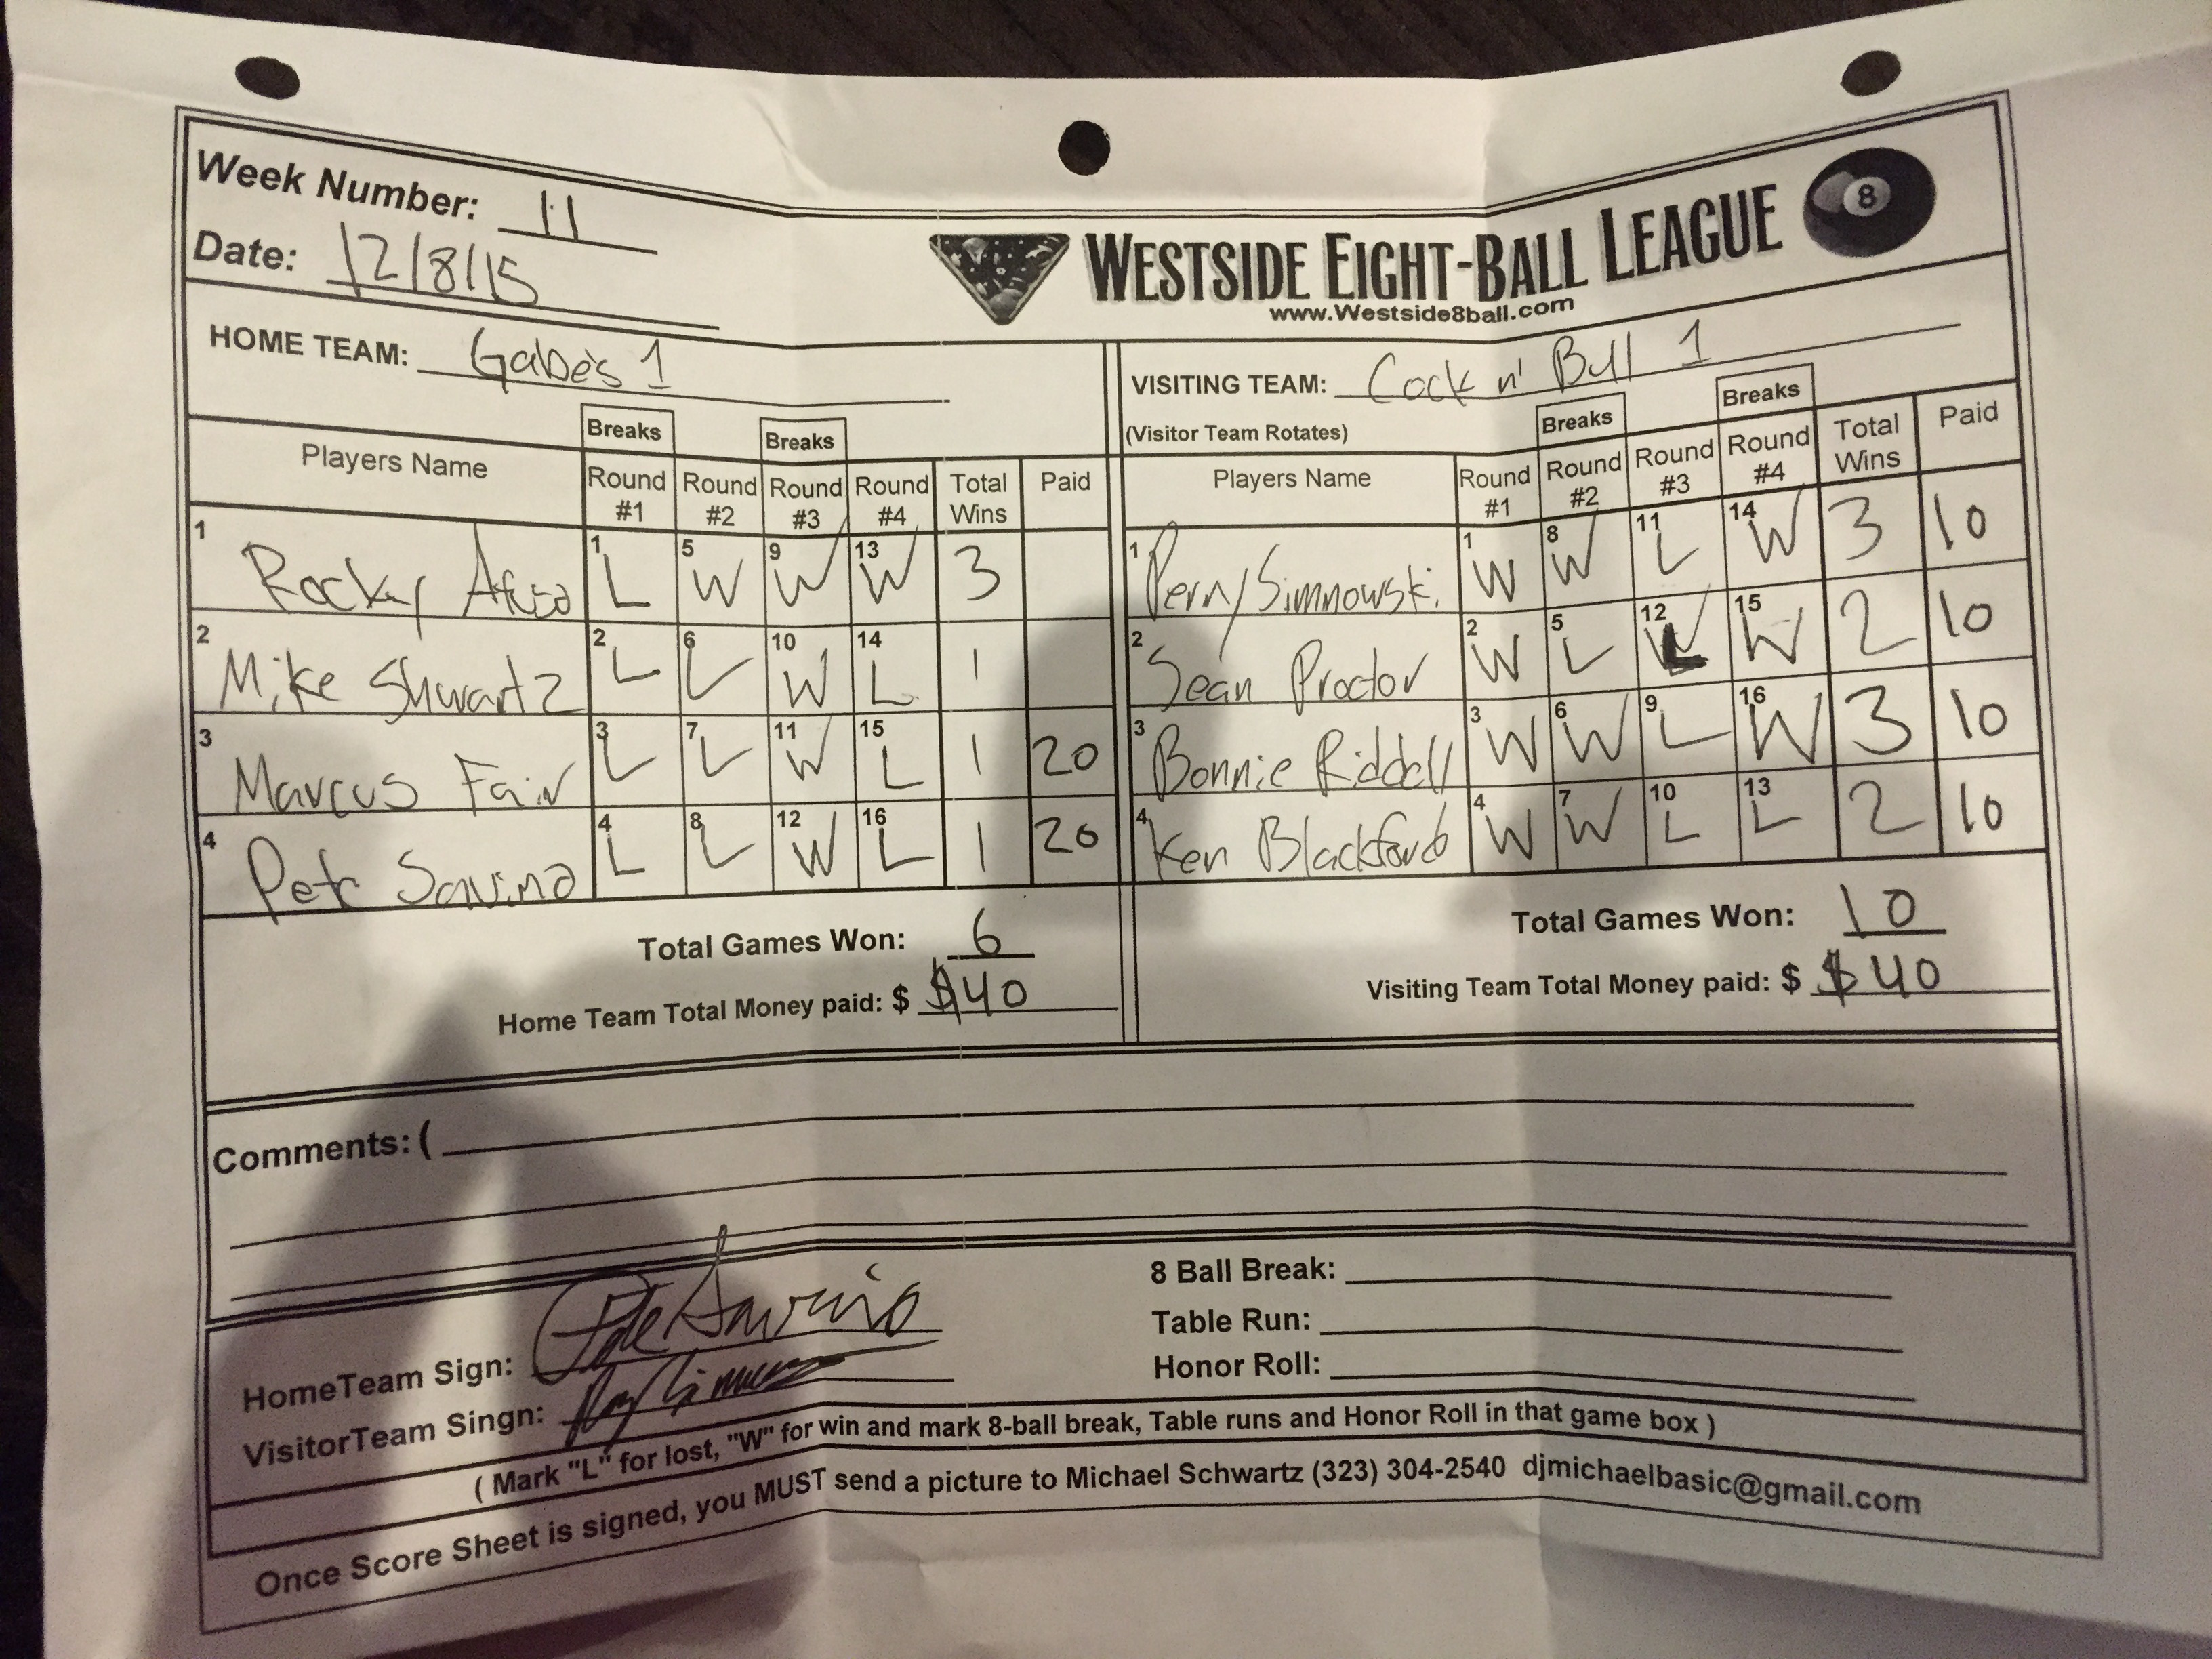 Week Number: 11
Date: 12/8/15
WESTSIDE EIGHT-BALL LEAGUE 8
www.Westside8ball.com
HOME TEAM: Gabe's 1
VISITING TEAM: Cock n' Bull 1
(Visitor Team Rotates)
Breaks Breaks
Players Name Round #1 Round #2 Round #3 Round #4 Total Wins Paid
1 Rocky 1 L 5 W 9 W 13 W 3
2 Mike Shwartz 2 L 6 L 10 W 14 L 1
3 Marcus Fair 3 L 7 L 11 W 15 L 1 20
4 Pete Savino 4 L 8 L 12 W 16 L 1 20
Total Games Won: 6
Home Team Total Money paid: $ $40
Breaks Breaks
Players Name Round #1 Round #2 Round #3 Round #4 Total Wins Paid
1 Perry Simnowski 1 W 8 W 11 L 14 W 3 10
2 Sean Proctor 2 W 5 L 12 L 15 W 2 10
3 Bonnie Riddell 3 W 6 W 9 L 16 W 3 10
4 Ken Blackford 4 W 7 W 10 L 13 L 2 10
Total Games Won: 10
Visiting Team Total Money paid: $ $40
Comments: (
HomeTeam Sign: Pete Savino
VisitorTeam Singn:
8 Ball Break:
Table Run:
Honor Roll:
( Mark "L" for lost, "W" for win and mark 8-ball break, Table runs and Honor Roll in that game box )
Once Score Sheet is signed, you MUST send a picture to Michael Schwartz (323) 304-2540 djmichaelbasic@gmail.com